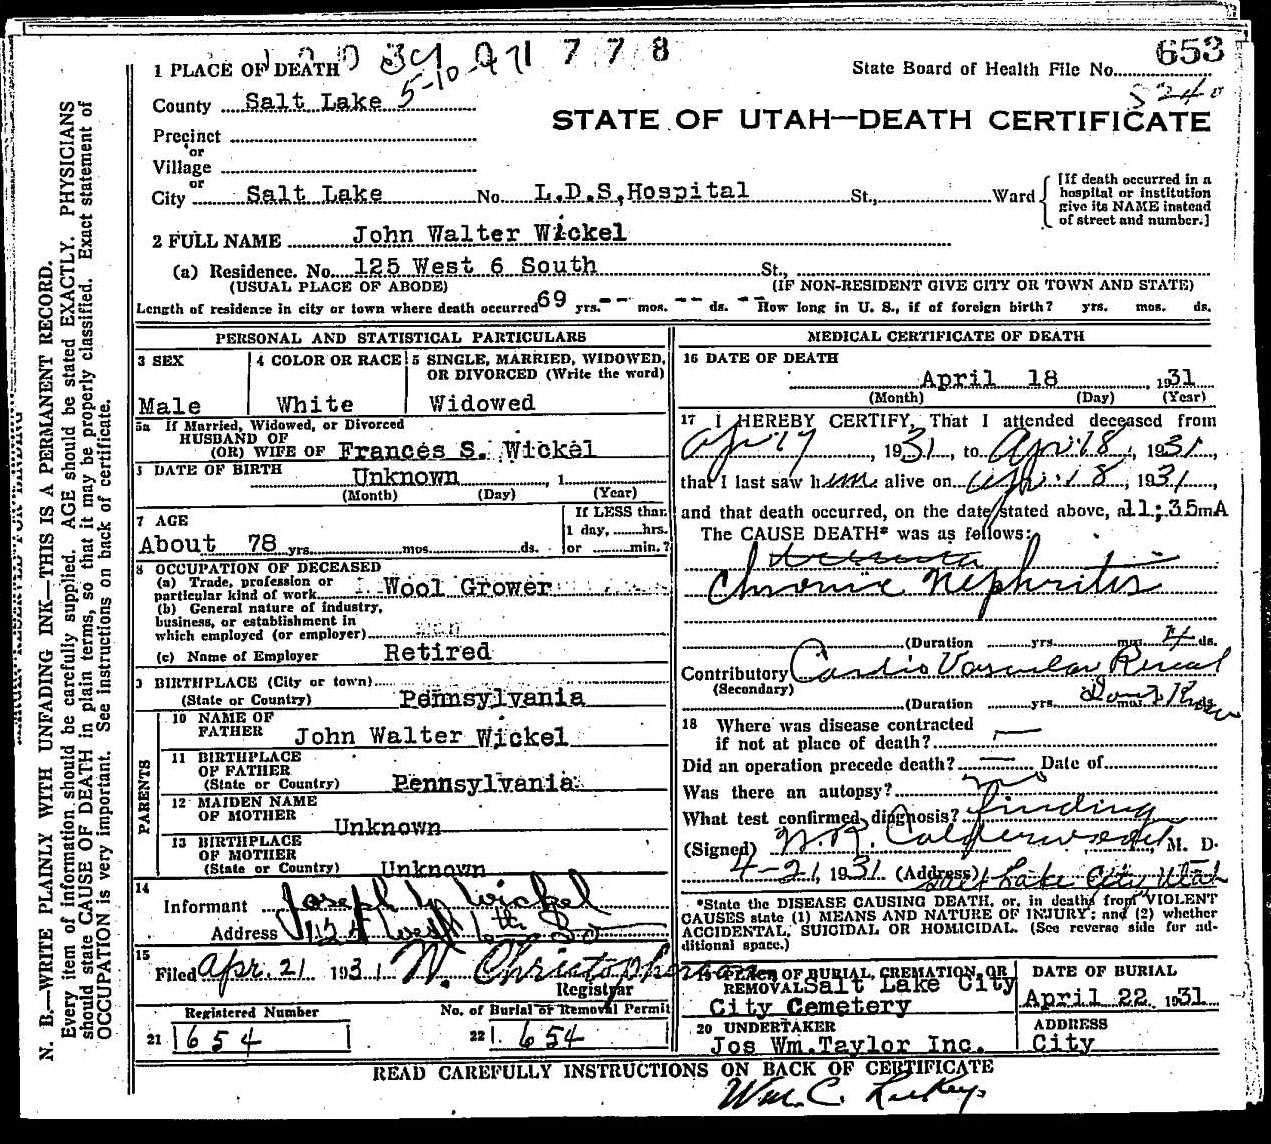 778
653
1 PLACE OF DEATH
State Board of Health File No.
5-10
County Salt Lake
STATE OF UTAH—DEATH CERTIFICATE
Precinct
or
Village
or
City Salt Lake No. L.D.S, Hospital St., Ward
[If death occurred in a
hospital or institution
give its NAME instead
of street and number.]
2 FULL NAME John Walter Wickel
(a) Residence. No. 125 West 6 South St.,
(USUAL PLACE OF ABODE) (IF NON-RESIDENT GIVE CITY OR TOWN AND STATE)
Length of residence in city or town where death occurred 69 yrs. -- mos. -- ds. -- How long in U. S., if of foreign birth? yrs. mos. ds.
PERSONAL AND STATISTICAL PARTICULARS
3 SEX
Male
4 COLOR OR RACE
White
5 SINGLE, MARRIED, WIDOWED,
OR DIVORCED (Write the word)
Widowed
5a If Married, Widowed, or Divorced
HUSBAND OF
(OR) WIFE OF Frances S. Wickel
DATE OF BIRTH
Unknown , 1
(Month) (Day) (Year)
7 AGE
About 78 yrs. mos. ds.
If LESS than
1 day, hrs.
or min.?
8 OCCUPATION OF DECEASED
(a) Trade, profession or
particular kind of work Wool Grower
(b) General nature of industry,
business, or establishment in
which employed (or employer)
(c) Name of Employer Retired
9 BIRTHPLACE (City or town)
(State or Country) Pennsylvania
PARENTS
10 NAME OF
FATHER John Walter Wickel
11 BIRTHPLACE
OF FATHER
(State or Country) Pennsylvania
12 MAIDEN NAME
OF MOTHER
Unknown
13 BIRTHPLACE
OF MOTHER
(State or Country) Unknown
14
Informant Joseph L Wickel
Address West 6th So
15
Filed Apr. 21 1931 W. Christopherson
Registrar
Registered Number
21 654
No. of Burial or Removal Permit
22 654
MEDICAL CERTIFICATE OF DEATH
16 DATE OF DEATH
April 18 , 1931
(Month) (Day) (Year)
17 I HEREBY CERTIFY, That I attended deceased from
Apr 17, 1931, to Apr 18, 1931,
that I last saw him alive on Apr 18, 1931,
and that death occurred, on the date stated above, at 11;35mA
The CAUSE DEATH* was as follows:
Chronic Nephritis
(Duration yrs. mos. 4 ds.
Contributory Cardio Vascular Renal
(Secondary)
(Duration yrs. mos. Don't Know
18 Where was disease contracted
if not at place of death? —
Did an operation precede death? — Date of
Was there an autopsy? no
What test confirmed diagnosis? finding
(Signed) W.R. Calderwood, M. D.
4-21, 1931 (Address) Salt Lake City, Utah
*State the DISEASE CAUSING DEATH, or, in deaths from VIOLENT
CAUSES state (1) MEANS AND NATURE OF INJURY; and (2) whether
ACCIDENTAL, SUICIDAL OR HOMICIDAL. (See reverse side for ad-
ditional space.)
19 PLACE OF BURIAL, CREMATION, OR
REMOVAL Salt Lake City
City Cemetery
DATE OF BURIAL
April 22 1931
20 UNDERTAKER
Jos Wm. Taylor Inc.
ADDRESS
City
READ CAREFULLY INSTRUCTIONS ON BACK OF CERTIFICATE
Wm. C.
N. B.—WRITE PLAINLY WITH UNFADING INK—THIS IS A PERMANENT RECORD.
Every item of information should be carefully supplied. AGE should be stated EXACTLY. PHYSICIANS
should state CAUSE OF DEATH in plain terms, so that it may be properly classified. Exact statement of
OCCUPATION is very important. See instructions on back of certificate.